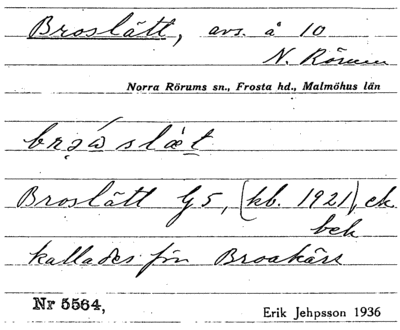 Broslätt, avs. å 10
N. Rörum
Norra Rörums sn., Frosta hd., Malmöhus län
slæt
Broslätt G 5, (kb. 1921), ek.
bek
kallades förr Broakärr
Nr 5564,
Erik Jehpsson 1936